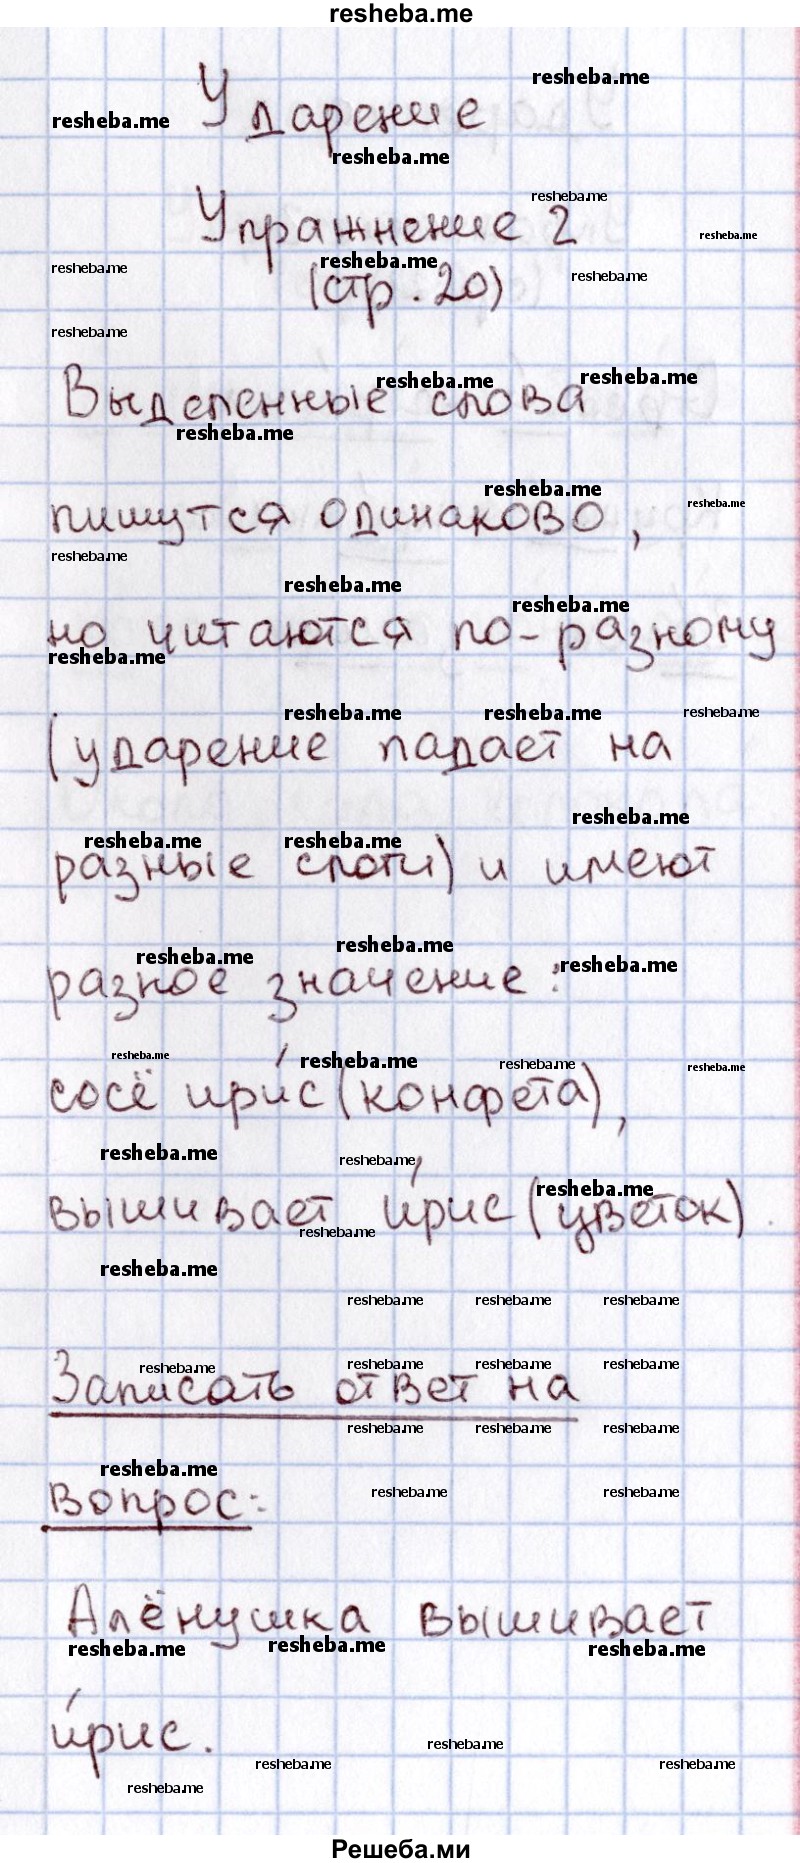 resheba.me
Ударение
Упражнение 2
(стр. 20)
Выделенные слова
пишутся одинаково,
но читаются по-разному
(ударение падает на
разные слоги) и имеют
разное значение:
сосё ири́с (конфета),
вышивает и́рис (цветок).
Записать ответ на
вопрос:
Алёнушка вышивает
и́рис.
Решеба.ми